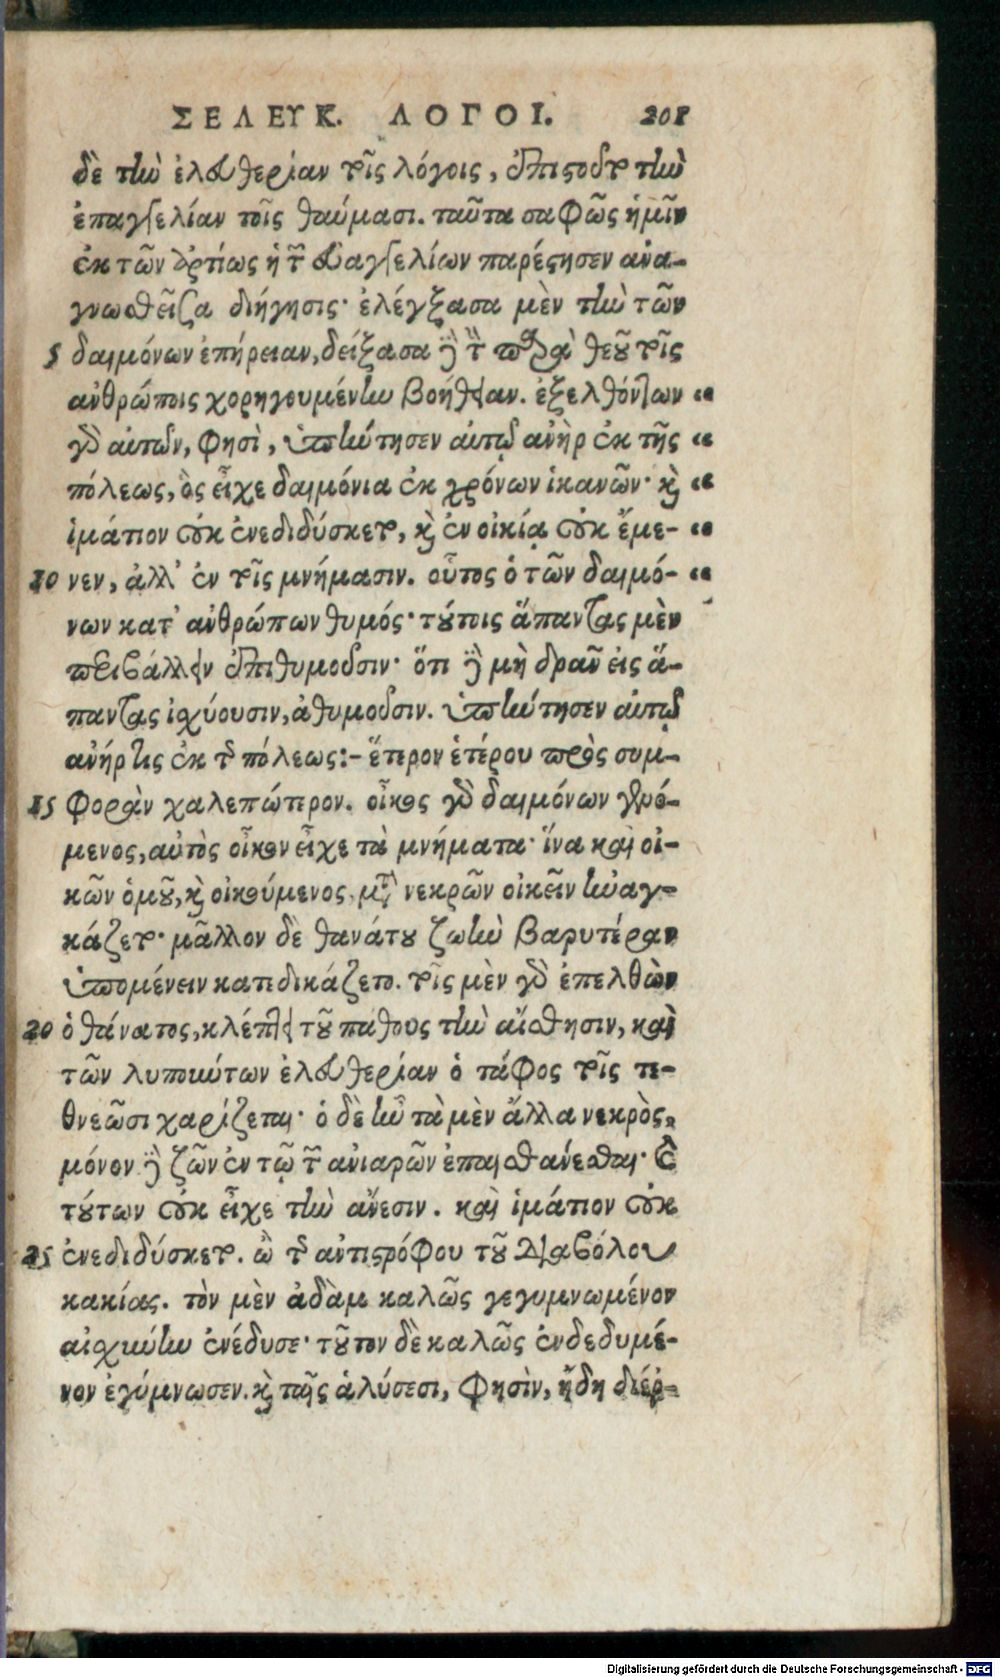 ΣΕΛΕΥΚ. ΛΟΓΟΙ. 201
δὲ τὴν ἐλευθερίαν τοῖς λόγοις, ἐπιστοῦτο τὴν
ἐπαγγελίαν τοῖς θαύμασι. ταῦτα σαφῶς ἡμῖν
ἐκ τῶν ἀρτίως ἡ τῶν εὐαγγελίων παρέστησεν ἀνα-
γνωσθεῖσα διήγησις· ἐλέγξασα μὲν τὴν τῶν
5 δαιμόνων ἐπήρειαν, δείξασα δὲ τὴν παρὰ θεοῦ τοῖς
ἀνθρώποις χορηγουμένην βοήθειαν. ἐξελθόντων “
γὰρ αὐτῶν, φησὶ, ὑπήντησεν αὐτῷ ἀνὴρ ἐκ τῆς “
πόλεως, ὃς εἶχε δαιμόνια ἐκ χρόνων ἱκανῶν· καὶ “
ἱμάτιον οὐκ ἐνεδιδύσκετο, καὶ ἐν οἰκίᾳ οὐκ ἔμε- “
10 νεν, ἀλλ’ ἐν τοῖς μνήμασιν. οὗτος ὁ τῶν δαιμό- “
νων κατ’ ἀνθρώπων θυμός· τούτοις ἅπαντας μὲν
περιβάλλειν ἐπιθυμοῦσιν· ὅτι δὲ μὴ δρᾶν εἰς ἅ-
παντας ἰσχύουσιν, ἀθυμοῦσιν. ὑπήντησεν αὐτῷ
ἀνήρ τις ἐκ τῆς πόλεως:- ἕτερον ἑτέρου πρὸς συμ-
15 φορὰν χαλεπώτερον. οἶκος γὰρ δαιμόνων γενό-
μενος, αὐτὸς οἶκον εἶχε τὰ μνήματα· ἵνα καὶ οἰ-
κῶν ὁμοῦ, καὶ οἰκούμενος, μετὰ νεκρῶν οἰκεῖν ἠναγ-
κάζετο· μᾶλλον δὲ θανάτου ζωὴν βαρυτέραν
ὑπομένειν κατεδικάζετο. τοῖς μὲν γὰρ ἐπελθὼν
20 ὁ θάνατος, κλέπτει τοῦ πάθους τὴν αἴσθησιν, καὶ
τῶν λυπούντων ἐλευθερίαν ὁ τάφος τοῖς τε-
θνεῶσι χαρίζεται· ὁ δὲ ἦν τὰ μὲν ἄλλα νεκρὸς,
μόνον δὲ ζῶν ἐν τῷ τῶν ἀνιαρῶν ἐπαισθάνεσθαι· καὶ
τούτων οὐκ εἶχε τὴν ἄνεσιν. καὶ ἱμάτιον οὐκ
25 ἐνεδιδύσκετο. ὢ τῆς ἀντιστρόφου τοῦ διαβόλου
κακίας. τὸν μὲν ἀδὰμ καλῶς γεγυμνωμένον
αἰσχύνην ἐνέδυσε· τοῦτον δὲ καλῶς ἐνδεδυμέ-
νον ἐγύμνωσεν. καὶ ταῖς ἁλύσεσι, φησὶν, ἤδη διέρ-
Digitalisierung gefördert durch die Deutsche Forschungsgemeinschaft - DFG